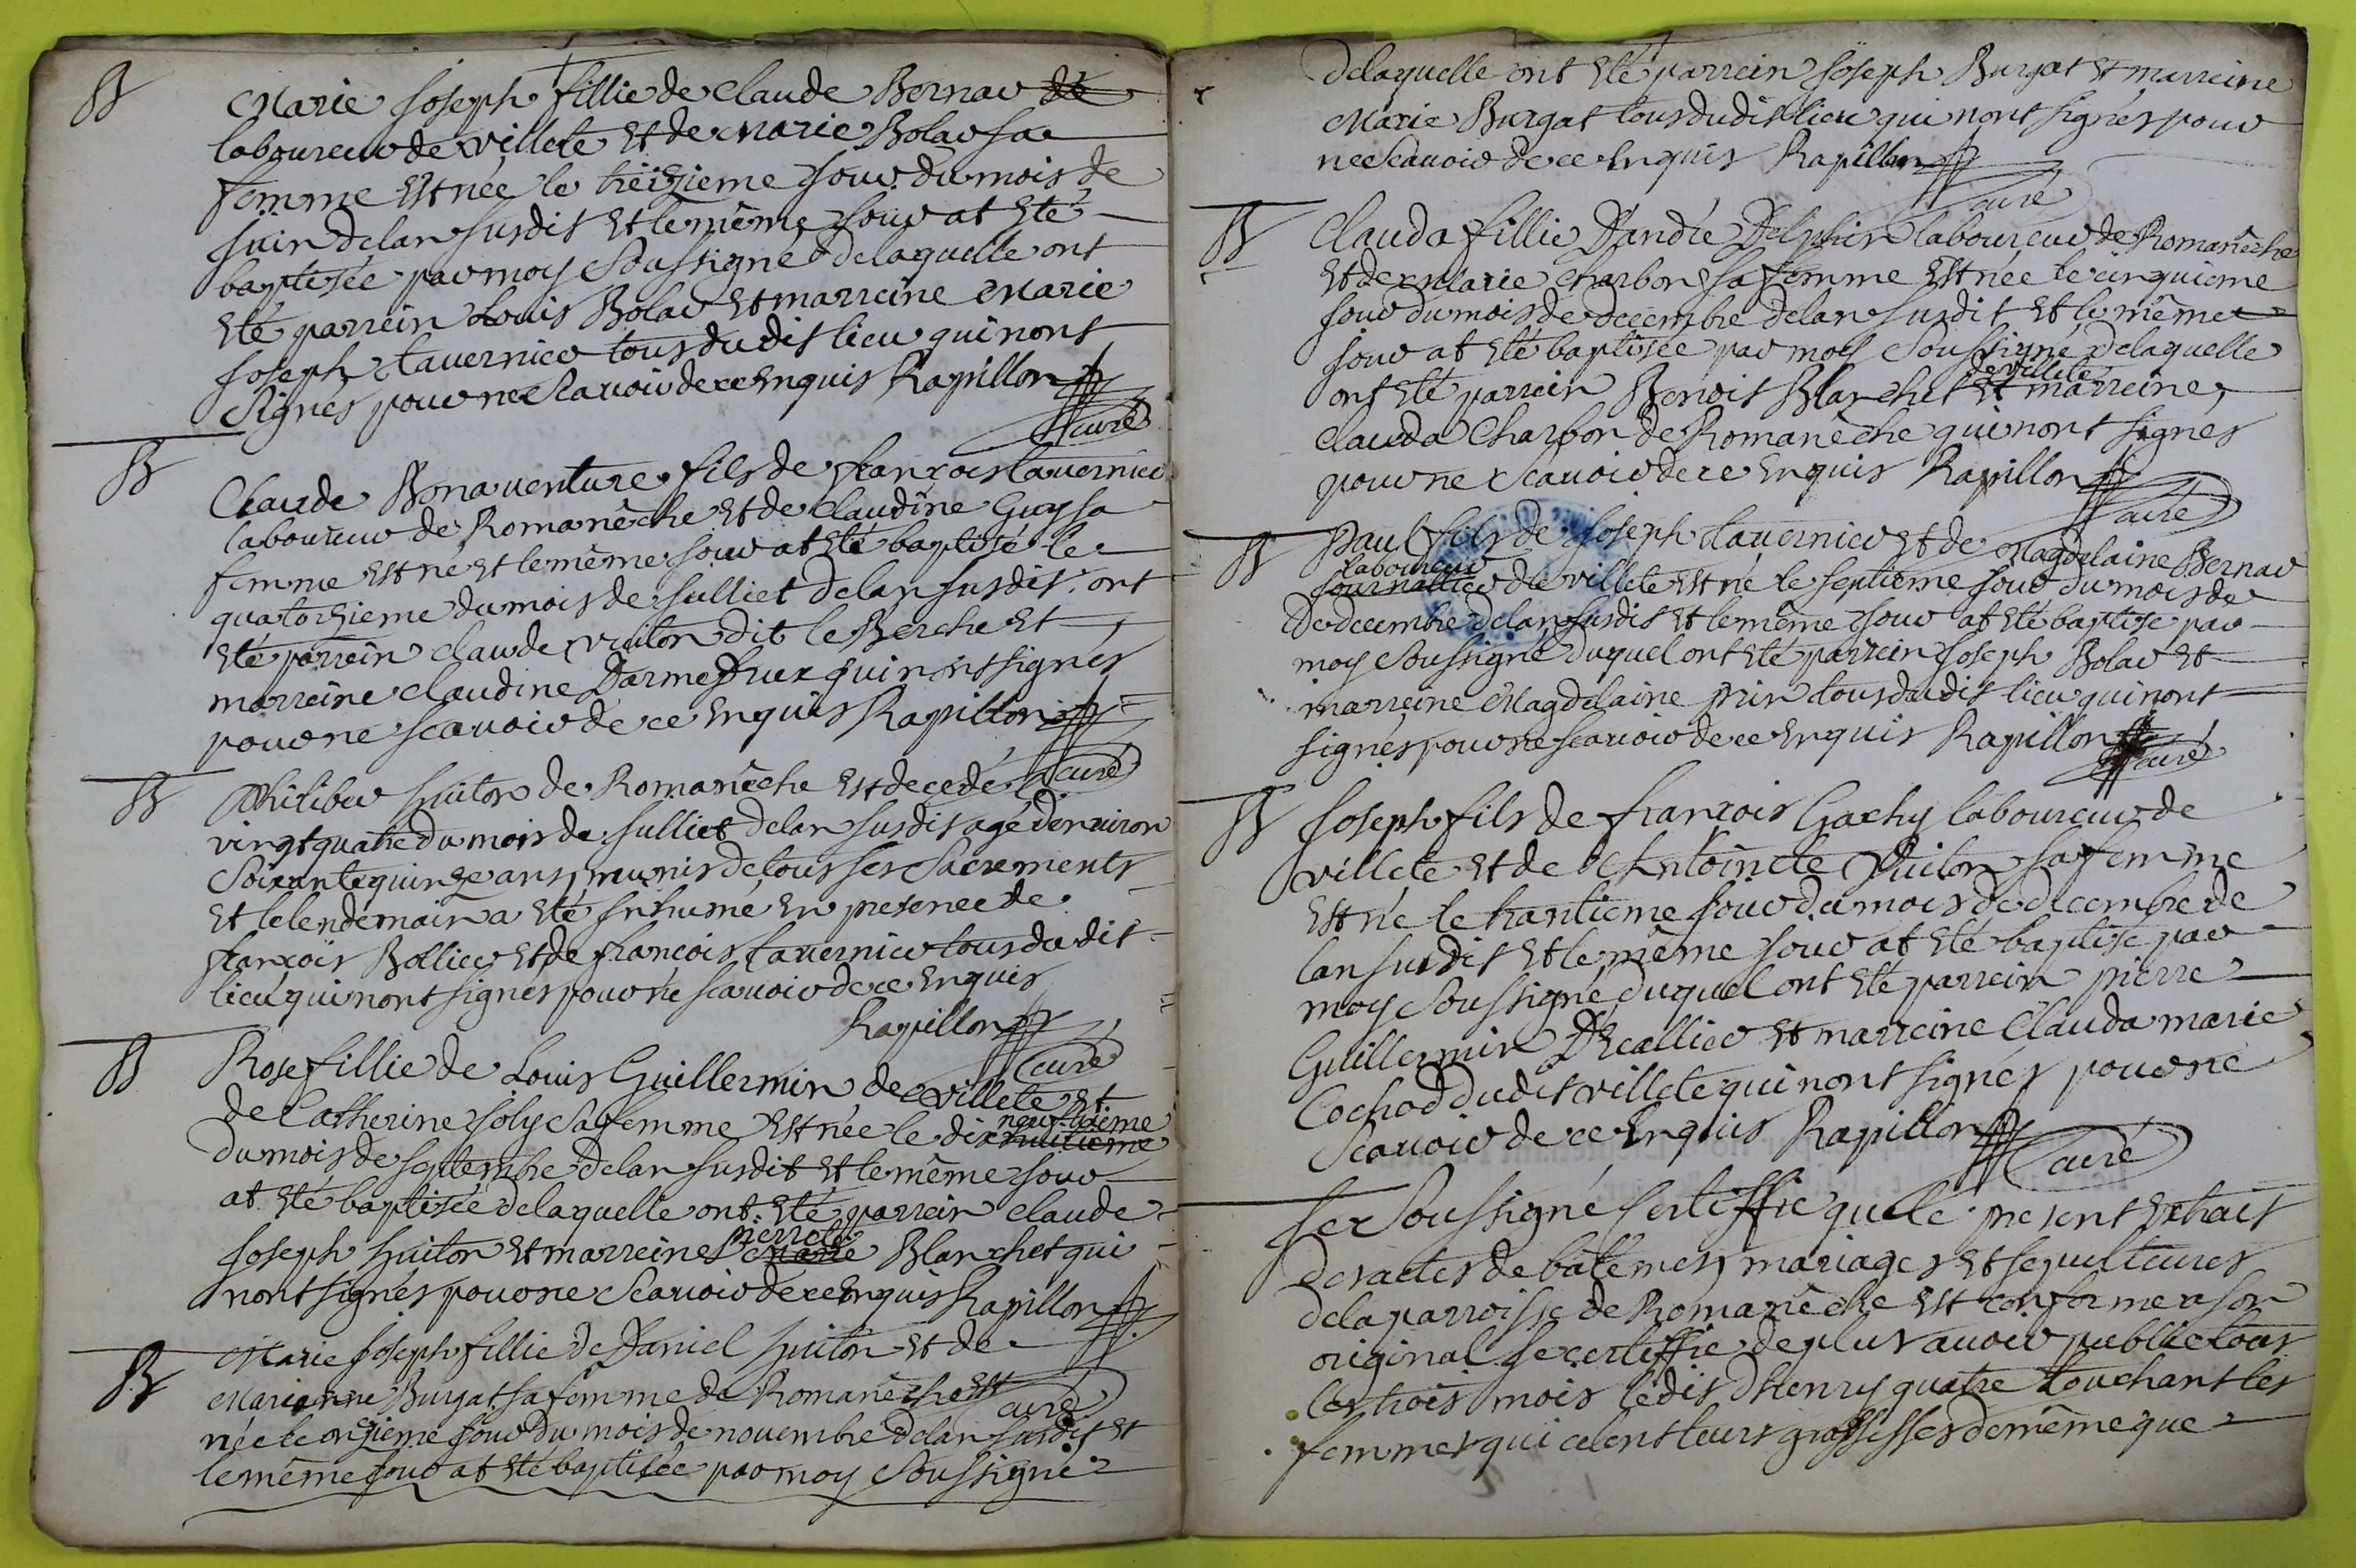 B
Marie Joseph fillie de Claude Bornav de
laboureur de villete Et de Marie Bolav sa
femme Est née le treizieme jour du mois de
juin de lan susdit Et le même jour at Eté
baptisée par moy Soussigné de laquelle ont
Eté parrein Louis Bolav Et marreine Marie
Joseph tavernier tous dudit lieu qui nont
Signés pour ne Scavoir de ce Enquis Rapillon
curé
B
Claude Bonaventure fils de francois tavernier
laboureur de Romanêche Et de Claudine Guy sa
femme Est né et le même jour at Eté baptisé le
quatorzieme du mois de Julliet de lan susdit ont
Eté parrein claude vuiton dit le Berche Et
marreine claudine Darmedrux qui nont signés
pour ne scavoir de ce Enquis Rapillon
curé
B
Philiber huiton de Romanêche Est decedé le
vingt quatre du mois de Julliet de lan susdit agé denviron
Soixante quinze ans munis de tous ses Sacrements
Et le lendemain a Eté Inhumé En presence de
francois Bollier Et de francois tavernier tous dudit
lieu qui nont signés pour ne scavoir de ce Enquis
Rapillon
curé
B
Rose fillie de Louis Guillermin de villete Et
de Catherine joly Sa femme Est née le dix huitieme
neuftieme
du mois de septembre de lan susdit Et le même jour
at Eté baptisée de laquelle ont Eté parrein claude
Joseph huiton Et marreine Marie Blanchet qui
pierrote
nont signés pour ne Scavoir de ce Enquis Rapillon
curé
B
Marie Joseph fillie de Daniel huiton Et de
Marianne Burgat sa femme de Romanêche Est
née le onzieme jour du mois de novembre de lan susdit et
le même jour at Eté baptisée par moy Soussigné
de laquelle ont Eté parrein Joseph Burgat Et marreine
Marie Burgat tous dudit lieu qui nont signés pour
ne Scavoir de ce Enquis Rapillon
curé
B
Clauda fillie Dandré Delphin laboureur de Romanêche
Et de Marie Charbon sa femme Est née le cinquieme
jour du mois de decembre de lan susdit Et le même
jour at Eté baptisée par moy Soussigné de laquelle
ont Eté parrein Benoit Blanchet de villete Et marreine
Clauda Charbon de Romanêche qui nont signés
pour ne Scavoir de ce Enquis Rapillon
curé
B
Paul fils de Joseph tavernier Et de Magdelaine Bernav
laboureur
journallier de villete Est né le septieme jour du mois de
De decembre de lan susdit Et le même jour at Eté baptisé par
moy Soussigné duquel ont Eté parrein Joseph Bolav Et
marreine Magdelaine prin tous dudit lieu qui nont
signés pour ne scavoir de ce Enquis Rapillon
curé
B
Joseph fils de francois Gachy laboureur de
villete Et de Antoinete Vuiton sa femme
Est né le trantieme jour du mois de decembre de
lan susdit Et le même jour at Eté baptisé par
moy Soussigné duquel ont Eté parrein pierre
Guillermin Ecallier Et marreine Clauda marie
Cochod dudit villete qui nont signés pour ne
Scavoir de ce Enquis Rapillon
curé
Je Soussigné Certiffie que le present Extrait
des actes de batêmes mariages Et sepultures
de la parroisse de Romanêche Est conforme a son
original je certiffie de plus avoir publié tous
les trois mois lédit dhenry quatre touchant les
femmes qui celent leurs grossesses de même que